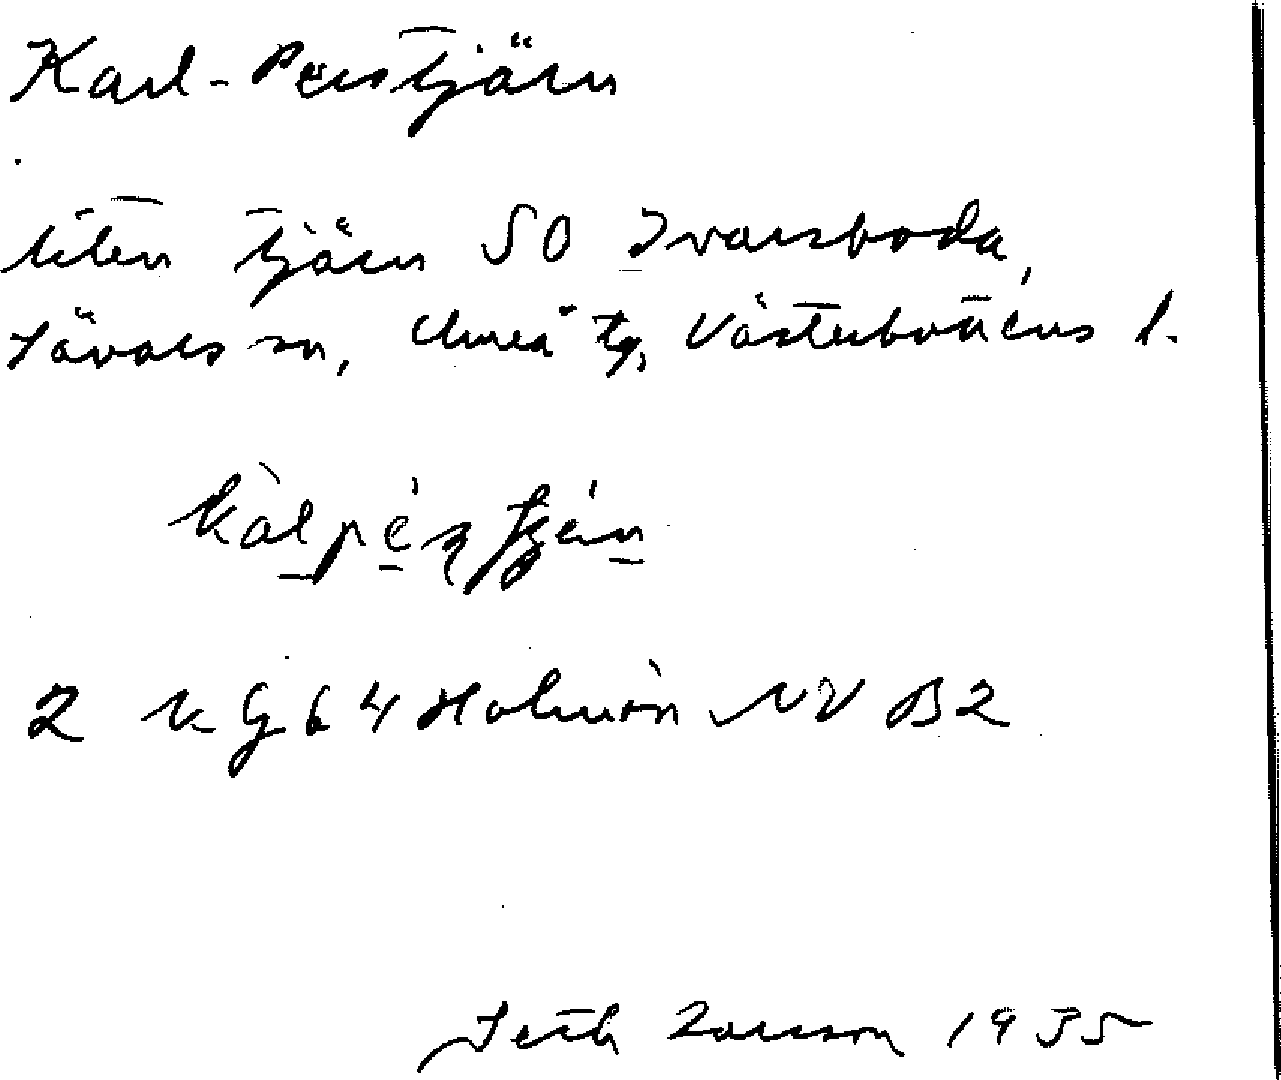 Karl-Perstjärn
liten tjärn SO Ivarsboda,
Sävars sn, Umeå tg, Västerbottens l.
2 k G 64 Holmön NV B2
Seth Larsson 1935